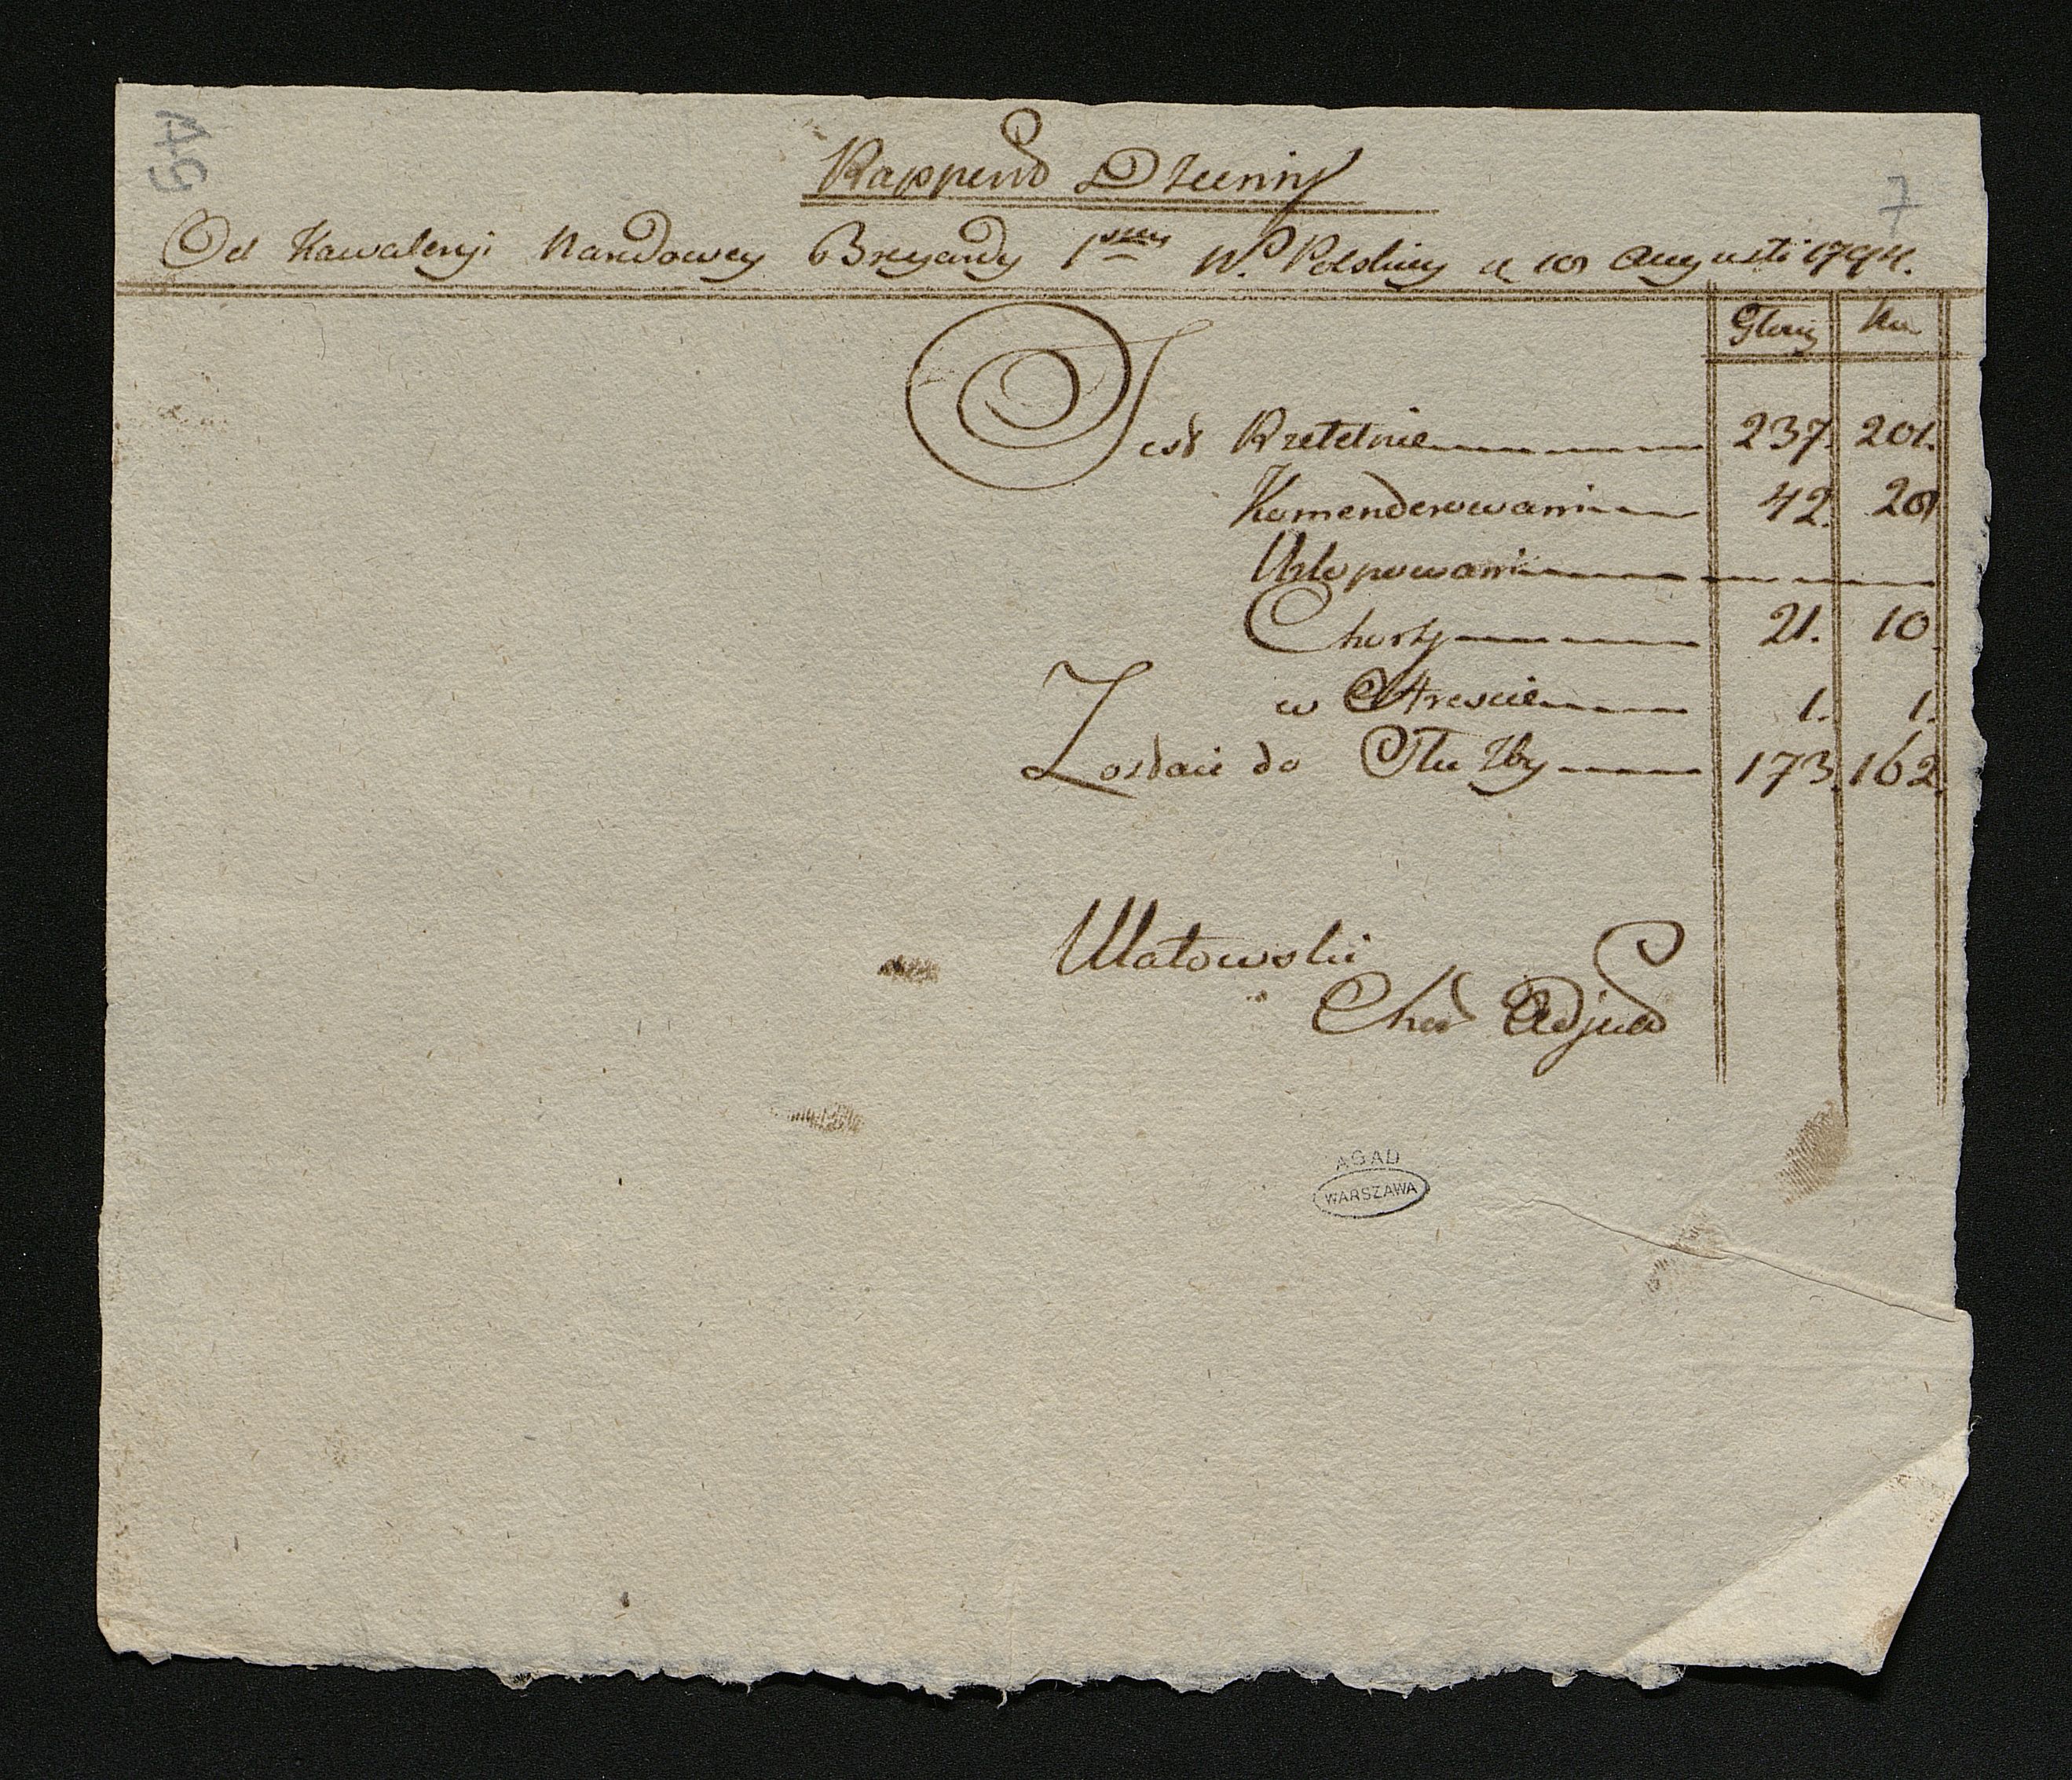 49
7
Rapport Dzienny
Od Kawaleryi Narodowey Brygady 1szey W.P. Polskiey d 10 Augusti 1794.
Głowy Ko
Jest Rzetelnie 237. 201.
Komenderowani 42. 28
Urlopowani
Chorzy 21. 10.
w Areście 1. 1.
Zostaie do Służby 173. 162.
Ułatowski
Cho Adjut
AGAD
WARSZAWA